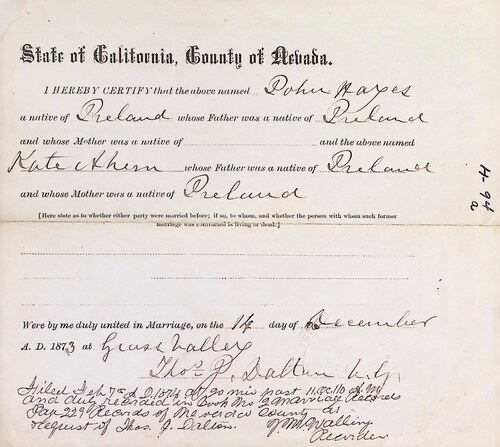 State of California, County of Nevada.
I HEREBY CERTIFY that the above named John Hayes
a native of Ireland whose Father was a native of Ireland
and whose Mother was a native of and the above named
Kate Ahern whose Father was a native of Ireland
and whose Mother was a native of Ireland
[Here state as to whether either party were married before; if so, to whom, and whether the person with whom such former
marriage was contracted is living or dead.]
Were by me duly united in Marriage, on the 14 day of December
A. D. 1873 at Grass Valley
Thos. J. Dalton V. G.
Filed Feb 7th A D 1874 at 20 min past 11 o'c A. M.
and duly recorded in Book No 2 Marriage Records
Page 229 Records of Nevada County at
request of Thos. J. Dalton.
Recorder
494
a